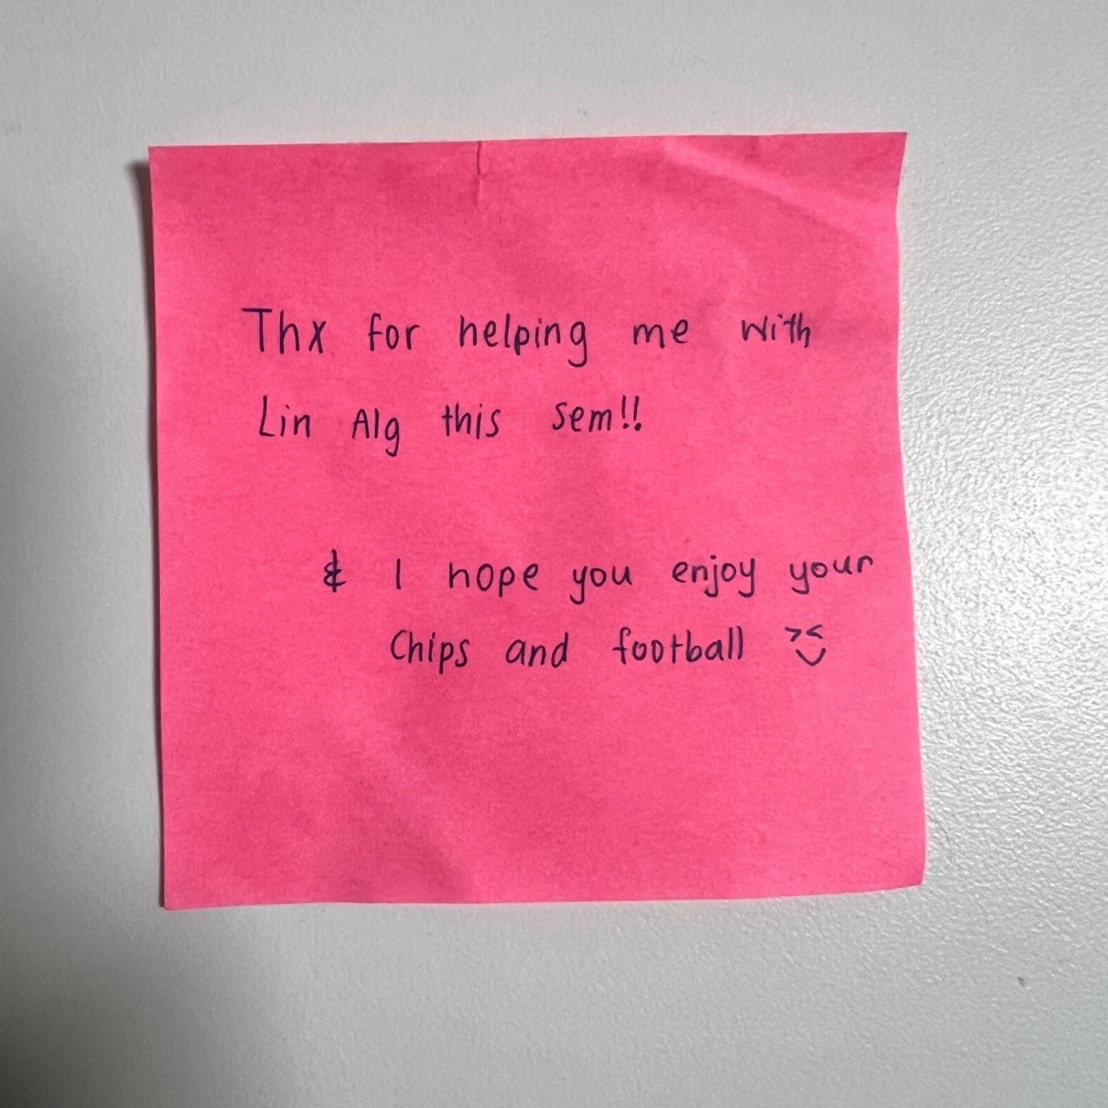 Thx for helping me with
Lin Alg this sem!!
& I hope you enjoy your
Chips and football